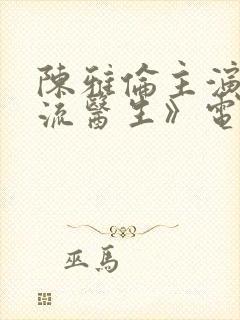 陳雅倫主演
流醫生》電
巫馬